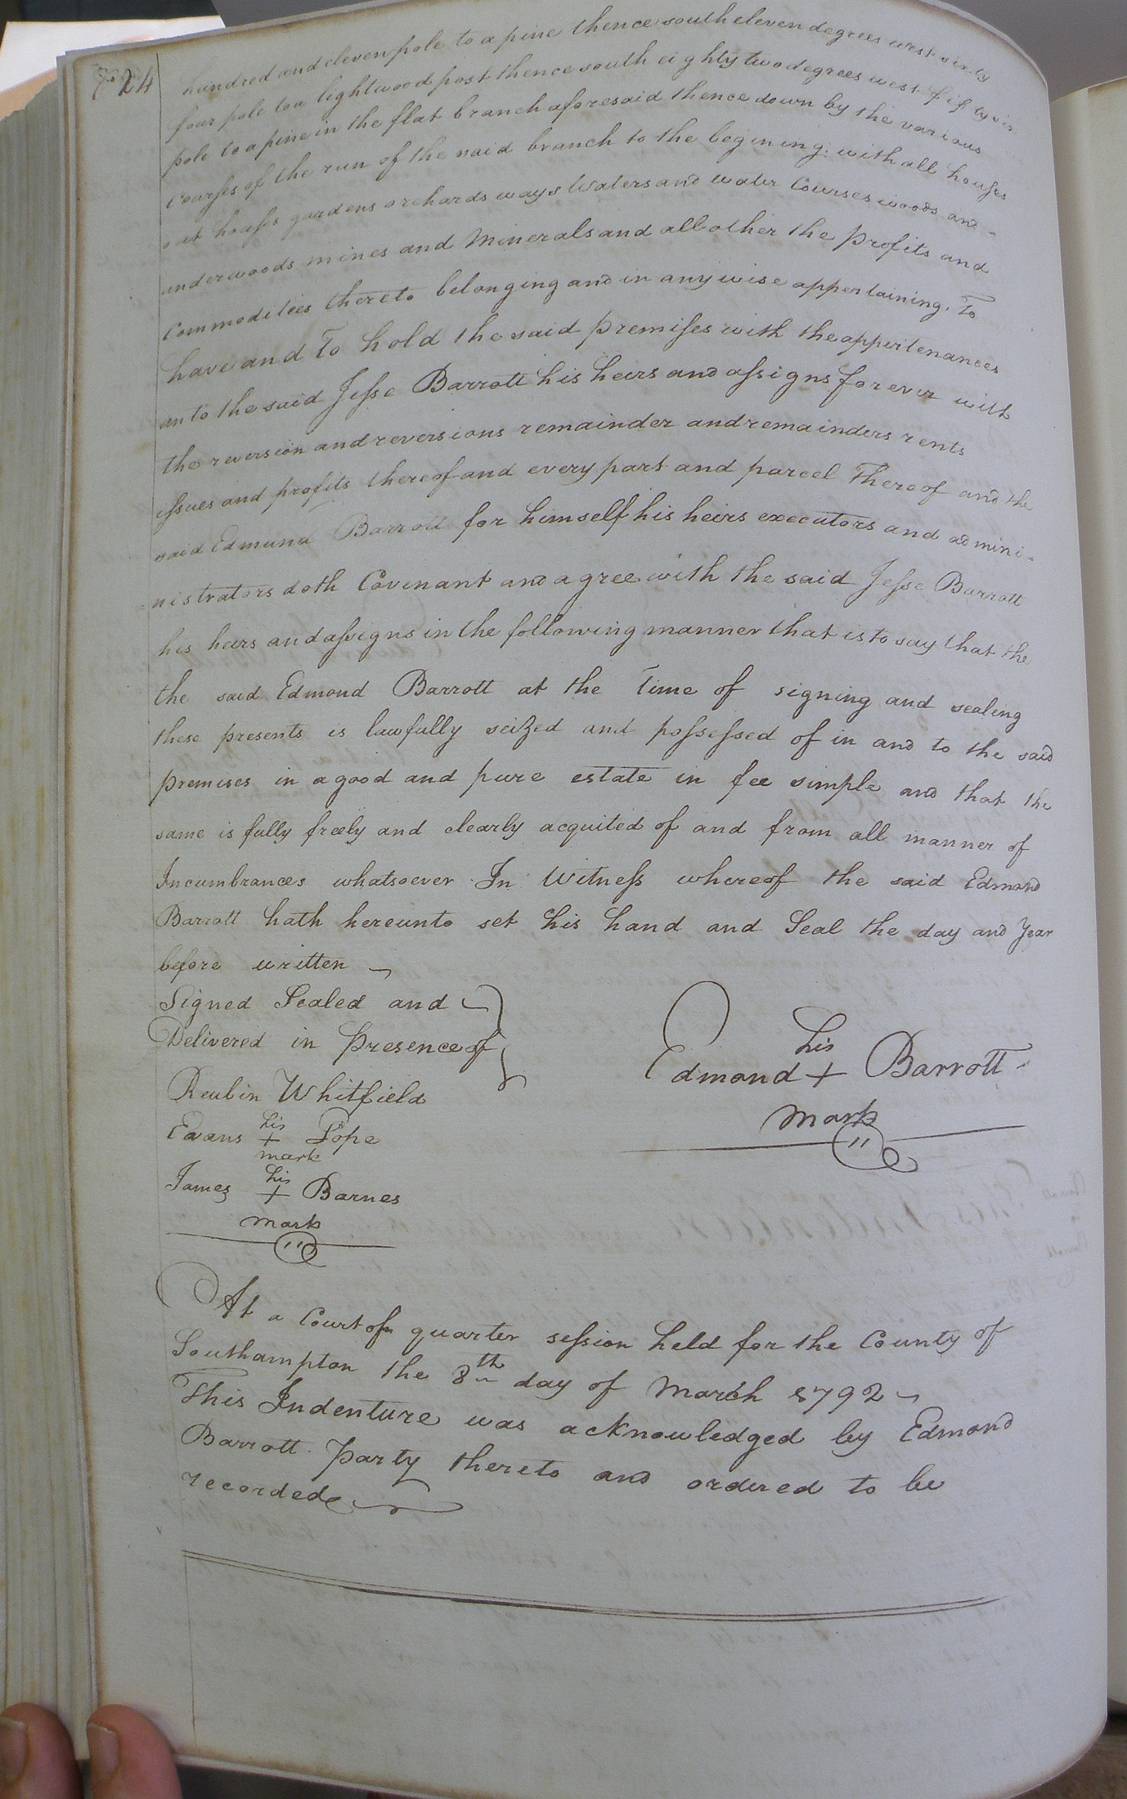 724
hundred and eleven pole to a pine thence south eleven degrees west sixty
four pole to a lightwood post thence south eighty two degrees west fifty six
pole to a pine in the flat branch aforesaid thence down by the various
Courses of the run of the said branch to the begining. with all houses
out houses gardens orchards ways Waters and water Courses woods and
underwoods mines and Minerals and all other the profits and
Commodities thereto belonging and in any wise appertaining. To
have and To hold the said premises with the appertenances
unto the said Jesse Barrott his heirs and assigns forever with
the reversion and reversions remainder and remainders rents
issues and profits thereof and every part and parcel Thereof and the
said Edmund Barrott for himself his heirs executors and admini-
=nistrators doth Covenant and agree with the said Jesse Barrott
his heirs and assigns in the following manner that is to say that the
the said Edmond Barrott at the Time of signing and sealing
these presents is lawfully seized and possessed of in and to the said
premises in a good and pure estate in fee simple and that the
same is fully freely and clearly acquited of and from all manner of
Incumbrances whatsoever In Witness whereof the said Edmond
Barrott hath hereunto set his hand and Seal the day and Year
before written
Signed Sealed and
Delivered in Presence of
Reubin Whitfield
Evans his + mark Pope
James his + mark Barnes
his
Edmond + Barrott
mark
At a Court of quarter session held for the County of
Southampton the 8th day of March 1792
This Indenture was acknowledged by Edmond
Barrott Party thereto and ordered to be
recorded